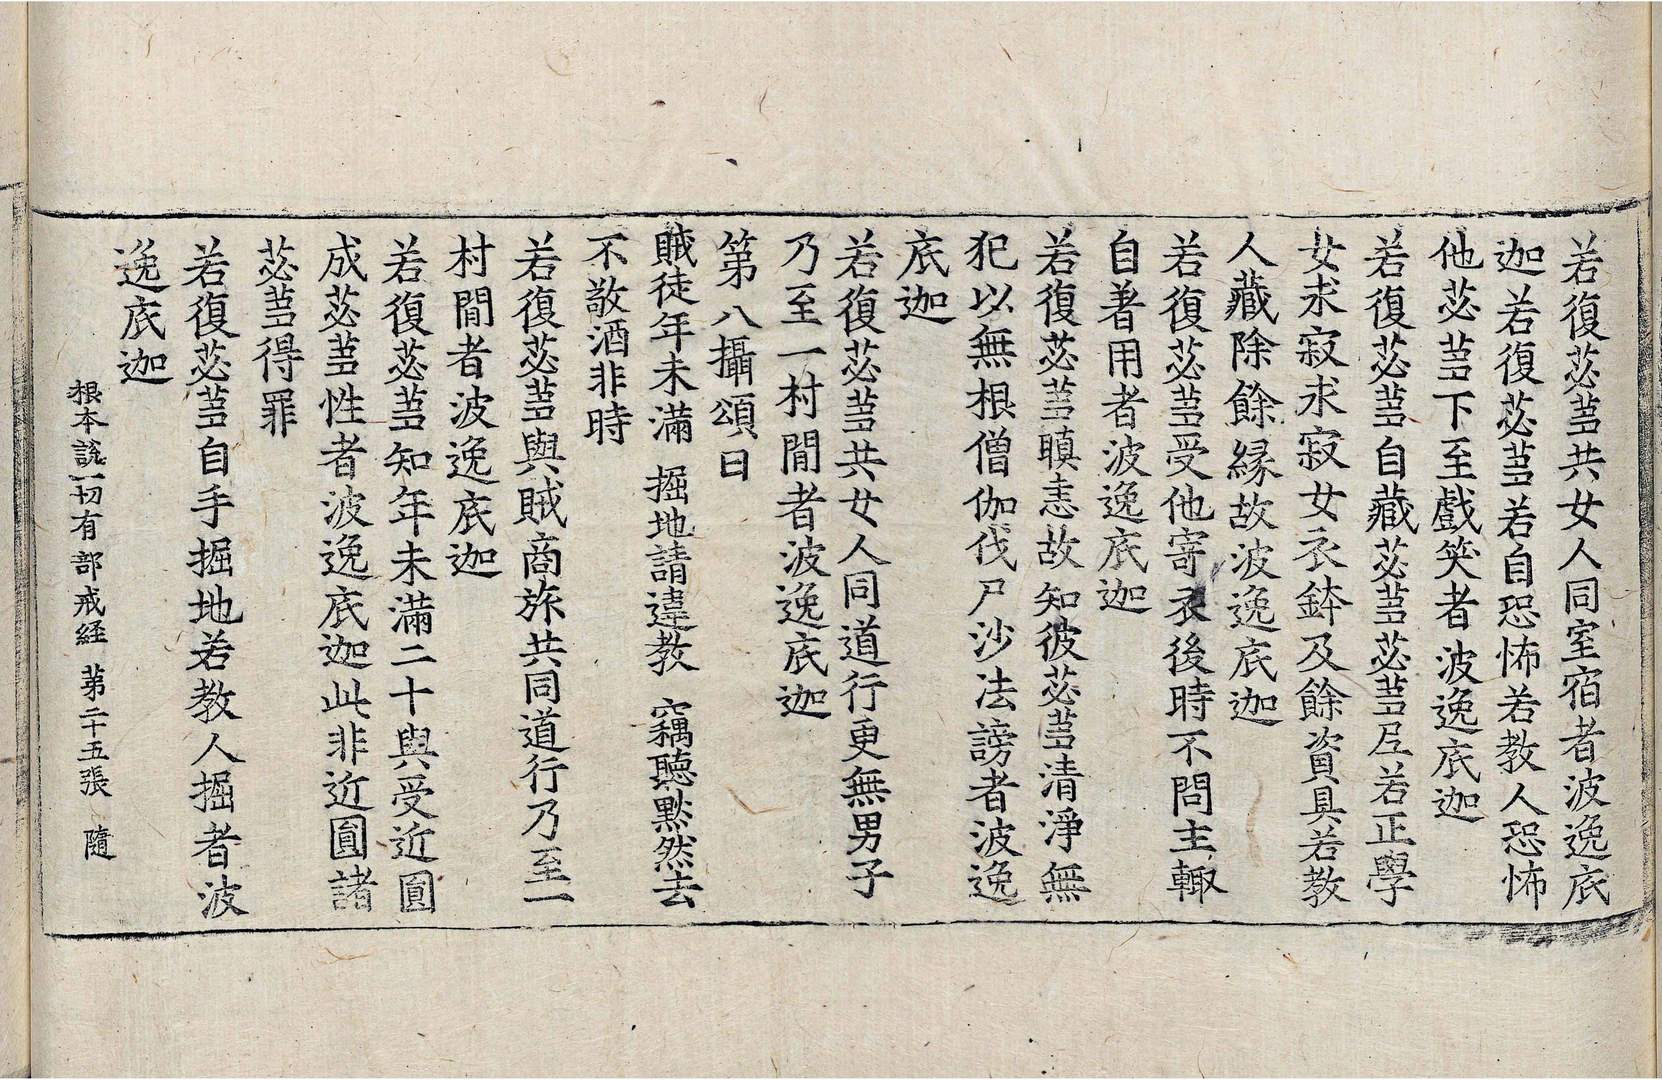 若復苾芻共女人同室宿者波逸底
迦若復苾芻若自恐怖若教人恐怖
他苾芻下至戲笑者波逸底迦
若復苾芻自藏苾芻苾芻尼若正學
女求寂求寂女衣鉢及餘資具若教
人藏除餘緣故波逸底迦
若復苾芻受他寄衣後時不問主輙
自著用者波逸底迦
若復苾芻瞋恚故知彼苾芻清淨無
犯以無根僧伽伐尸沙法謗者波逸
底迦
若復苾芻共女人同道行更無男子
乃至一村間者波逸底迦
第八攝頌曰
賊徒年未滿 掘地請違教 竊聽默然去
不敬酒非時
若復苾芻與賊商旅共同道行乃至一
村間者波逸底迦
若復苾芻知年未滿二十與受近圓
成苾芻性者波逸底迦此非近圓諸
苾芻得罪
若復苾芻自手掘地若教人掘者波
逸底迦
根本說一切有部戒経 第二十五張 隨